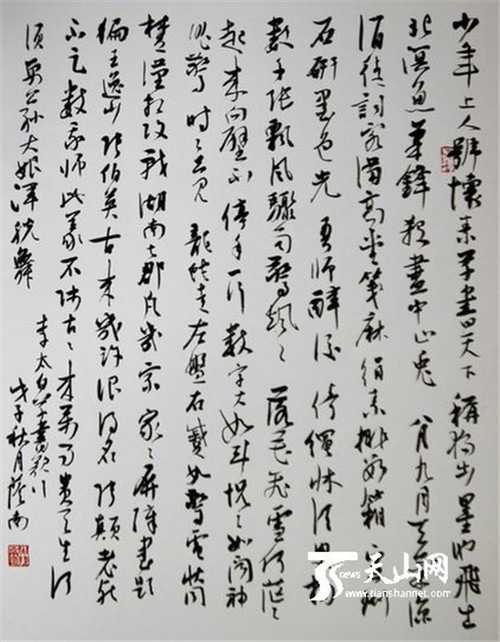 少年上人號懷素草書天下稱獨步墨池飛出
北溟魚筆鋒殺盡中山兔八月九月天氣涼
酒徒詞客滿高堂箋麻絹素排數箱宣州
石研墨色光吾師醉後倚繩床須臾掃盡
數千張飄風驟雨驚颯々落花飛雪何茫々
起來向壁不停手一行數字大如斗怳々如聞神
鬼驚時々只見龍蛇走左盤右蹙如驚電狀同
楚漢相攻戰湖南七郡凡幾家家々屏障書題
徧王逸少張伯英古來幾許浪得名張顛老死
不足數我師此義不師古々來萬事貴天生何
須要公孫大娘渾脫舞
李太白草書歌行
戊子秋月
天山网
news
www.tianshannet.com